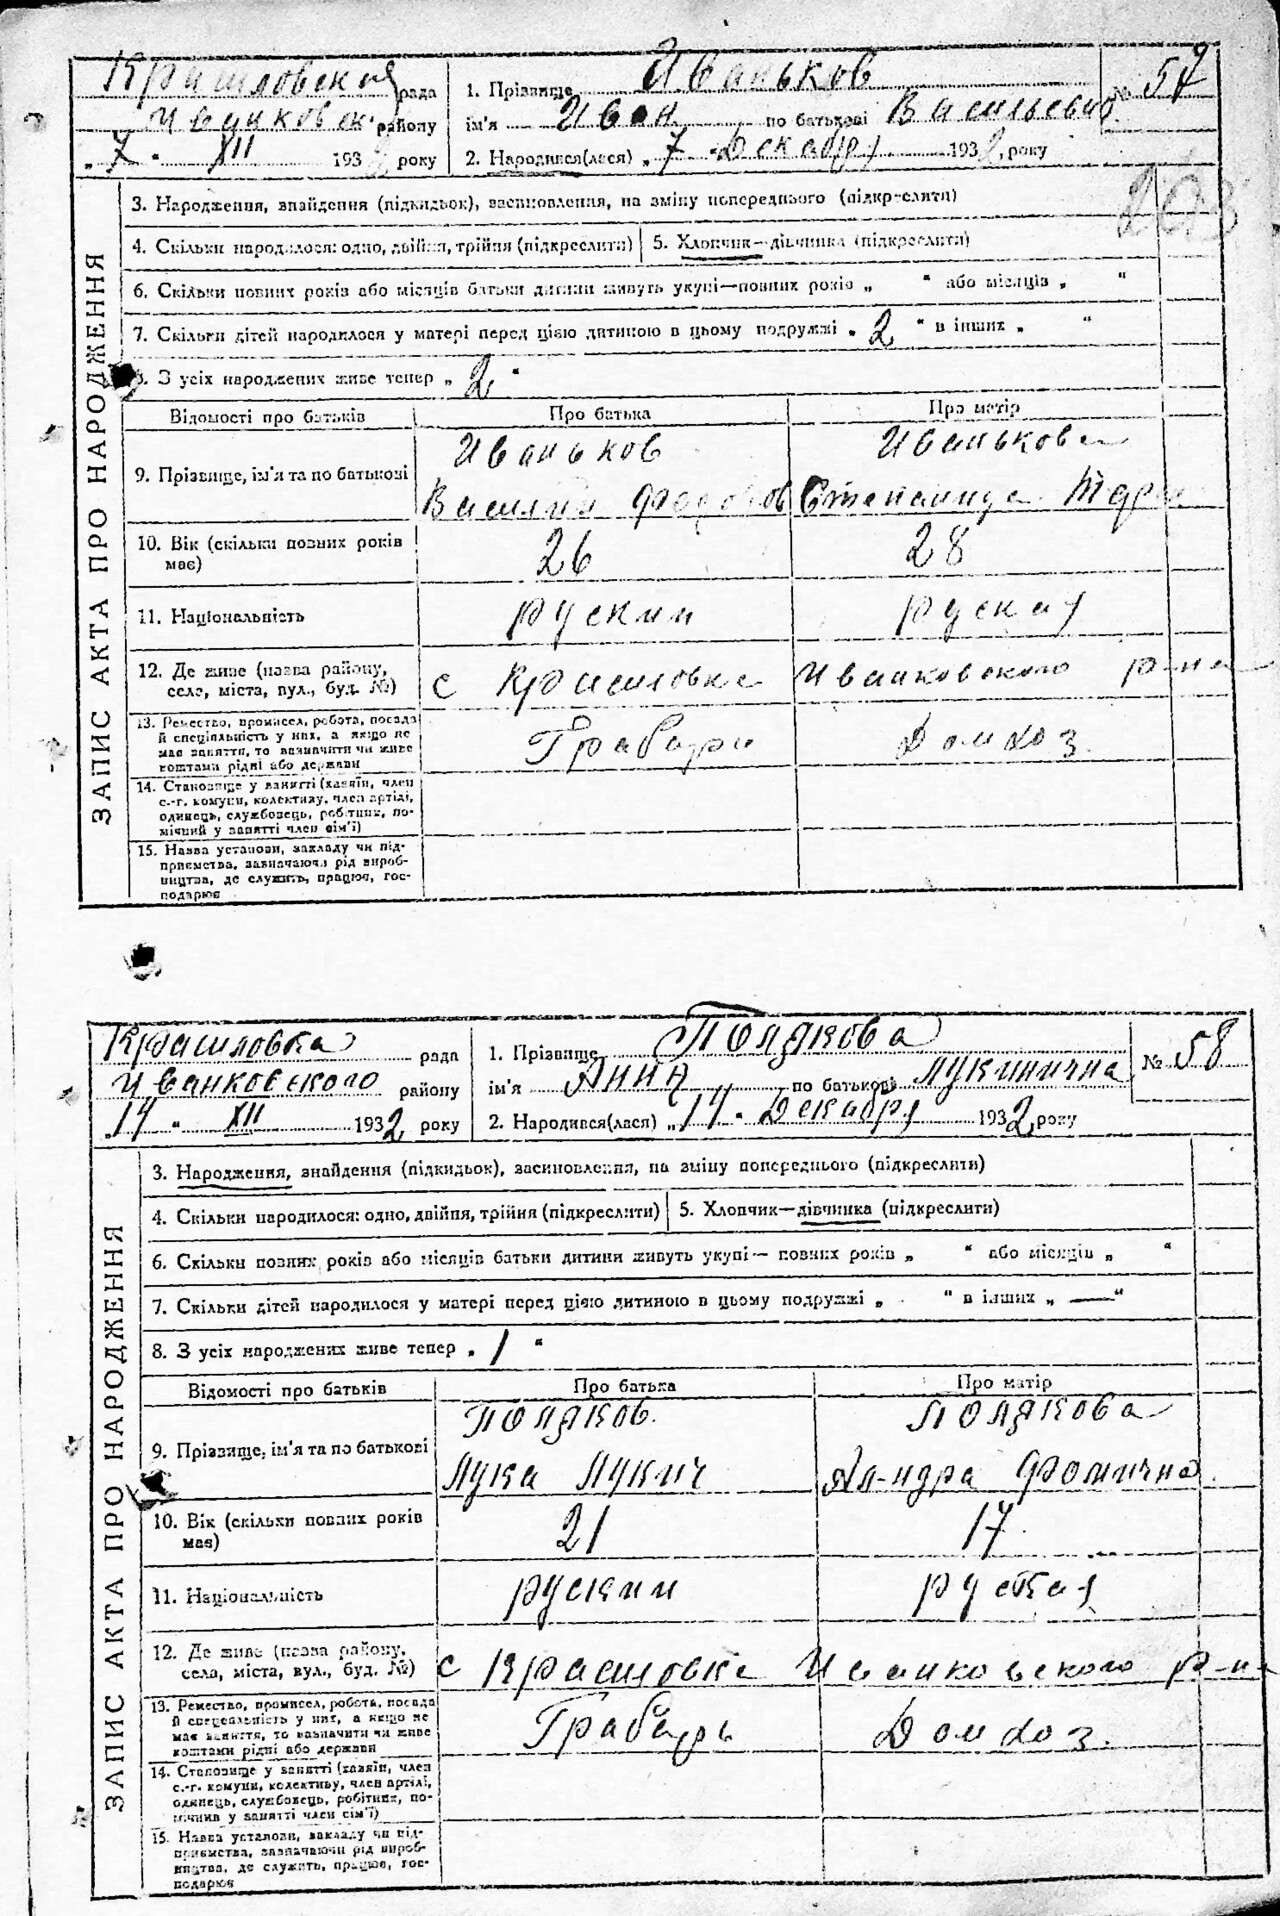 Красиловская рада
Иванковск. району
„7" XII 1932 року
1. Прізвище Иваньков
ім'я Иван по батькові Васильевич
№ 57
2. Народився(лася) „7" Декабря 1932 року
ЗАПИС АКТА ПРО НАРОДЖЕННЯ
3. Народження, знайдення (підкидьок), засиновлення, на зміну попереднього (підкреслити)
4. Скільки народилося: одно, двійня, трійня (підкреслити) 5. Хлопчик—дівчинка (підкреслити)
6. Скільки повних років або місяців батьки дитини живуть укупі—повних років „ " або місяців „ "
7. Скільки дітей народилося у матері перед цією дитиною в цьому подружжі „2" в інших „ "
8. З усіх народжених живе тепер „2"
Відомості про батьків Про батька Про матір
9. Прізвище, ім'я та по батькові
Иваньков Иванькова
Василий Федоров Степанида
10. Вік (скільки повних років має) 26 28
11. Національність руский руская
12. Де живе (назва району, село, міста, вул., буд. №) с Красиловка Иванковского р-на
13. Ремество, промисел, робота, посада
й спеціяльність у них, а якщо не
має заняття, то зазначити чи живе
коштами рідні або держави
Грабарь Домхоз.
14. Становище у занятті (хазяїн, член
с.-г. комуни, колективу, член артілі,
одинець, службовець, робітник, по-
мічний у занятті член сім'ї)
15. Назва установи, закладу чи під-
приємства, зазначаючи рід вироб-
ництва, де служить, працює, гос-
подарює
Красиловка рада
Иванковского району
„14" XII 1932 року
1. Прізвище Полякова
ім'я Анна по батькові Лукинична
№ 58
2. Народився(лася) „14" Декабря 1932 року
ЗАПИС АКТА ПРО НАРОДЖЕННЯ
3. Народження, знайдення (підкидьок), засиновлення, на зміну попереднього (підкреслити)
4. Скільки народилося: одно, двійня, трійня (підкреслити) 5. Хлопчик—дівчинка (підкреслити)
6. Скільки повних років або місяців батьки дитини живуть укупі— повних років „ " або місяців „ "
7. Скільки дітей народилося у матері перед цією дитиною в цьому подружжі „ " в інших „ — "
8. З усіх народжених живе тепер „1"
Відомості про батьків Про батька Про матір
9. Прізвище, ім'я та по батькові
Поляков. Полякова
Лука Лукич Ал-ндра Фомична
10. Вік (скільки повних років має) 21 17
11. Національність руский руская
12. Де живе (назва району, села, міста, вул., буд. №) с Красиловка Иванковского р-на
13. Ремество, промисел, робота, посада
й спеціяльність у них, а якщо не
має заняття, то зазначити чи живе
коштами рідні або держави
Грабарь Домхоз.
14. Становище у занятті (хазяїн, член
с.-г. комуни, колективу, член артілі,
одинець, службовець, робітник, по-
мічник у занятті член сім'ї)
15. Назва установи, закладу чи під-
приємства, зазначаючи рід вироб-
ництва, де служить, працює, гос-
подарює